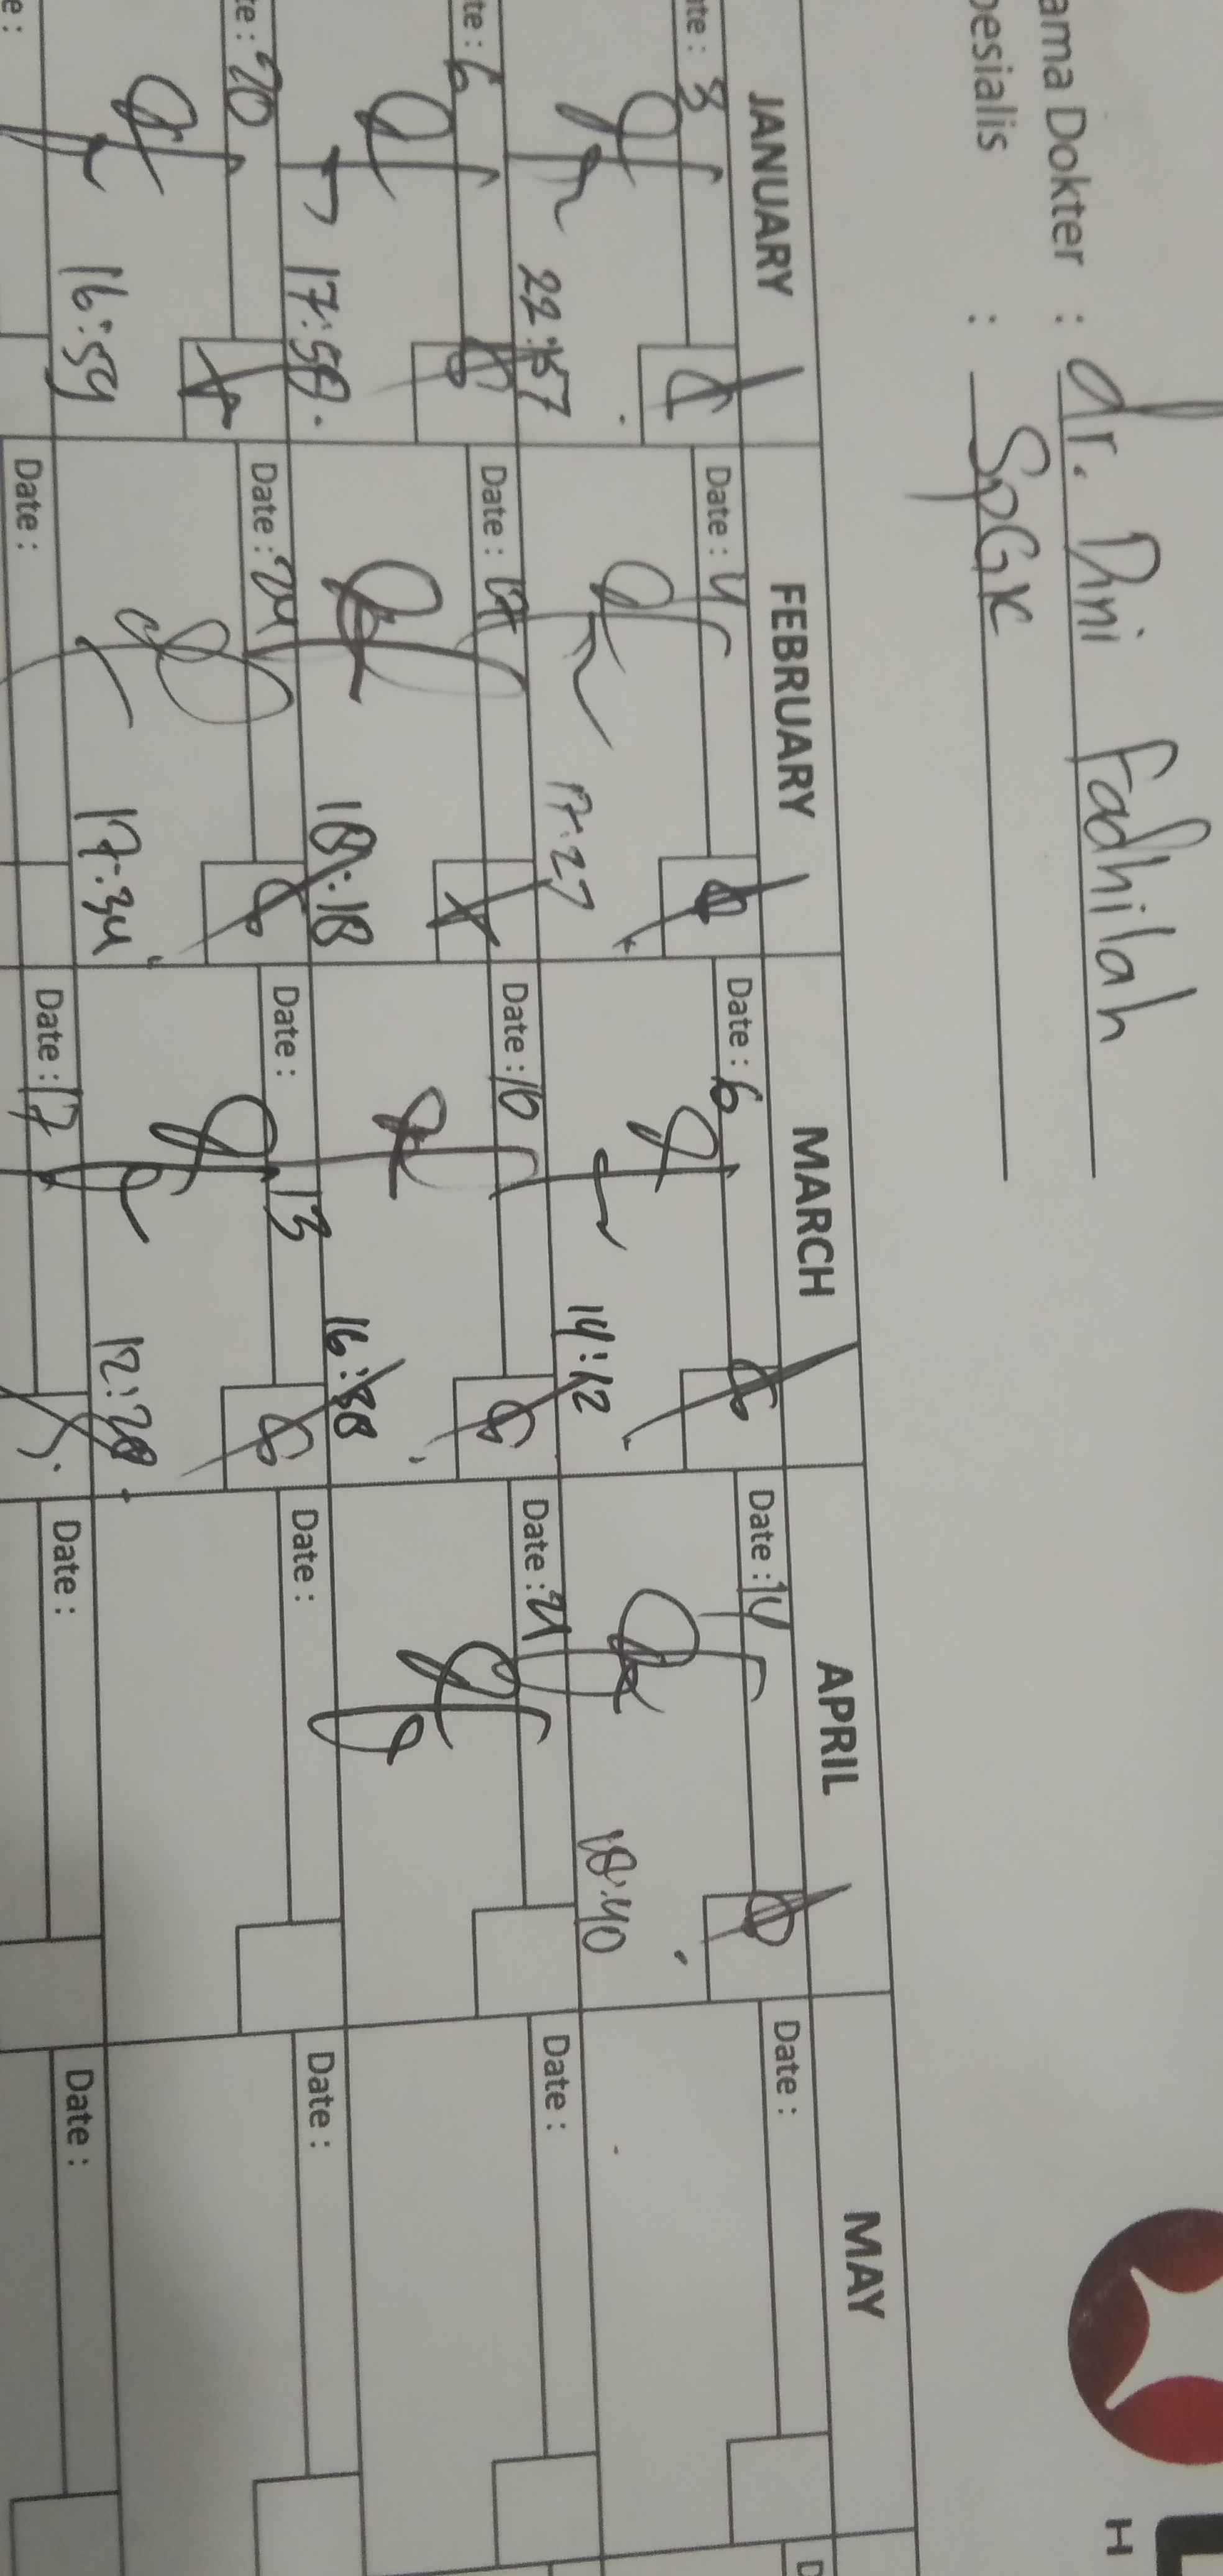 ama Dokter : dr. Dini Fadhilah
pesialis : SpGK
JANUARY FEBRUARY MARCH APRIL MAY
ate : 3 Date : 4 Date : 6 Date : 14 Date : D
22:57 17:27 14:12 18:40
te : 6 Date : Date : 10 Date : 21 Date :
17:58 18:18 16:38
te : 20 Date : 24 Date : 13 Date : Date :
16:59 17:34 12:28
e : Date : Date : 17 Date : Date :
H